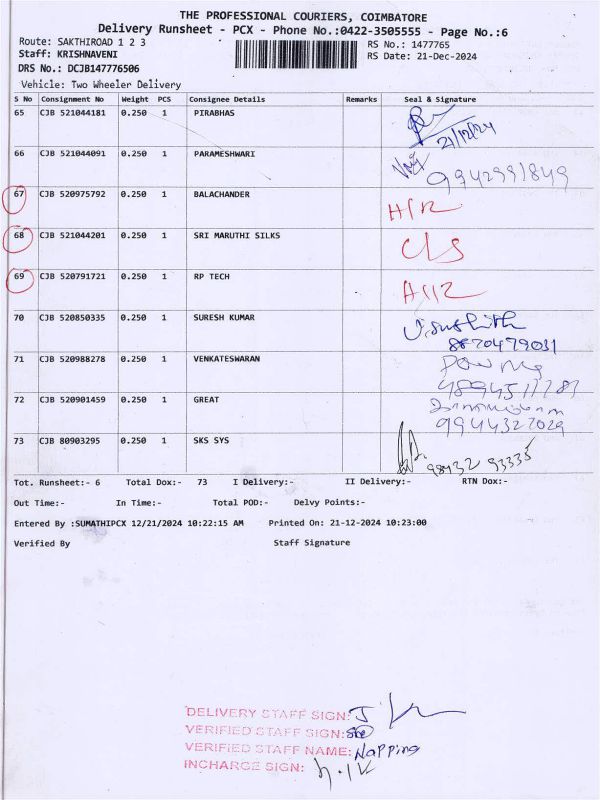 THE PROFESSIONAL COURIERS, COIMBATORE
Delivery Runsheet - PCX - Phone No.:0422-3505555 - Page No.:6
Route: SAKTHIROAD 1 2 3 RS No.: 1477765
Staff: KRISHNAVENI RS Date: 21-Dec-2024
DRS No.: DCJB147776506
Vehicle: Two Wheeler Delivery
S No Consignment No Weight PCS Consignee Details Remarks Seal & Signature
65 CJB 521044181 0.250 1 PIRABHAS 21/12/24
66 CJB 521044091 0.250 1 PARAMESHWARI 9942991849
67 CJB 520975792 0.250 1 BALACHANDER
68 CJB 521044201 0.250 1 SRI MARUTHI SILKS
69 CJB 520791721 0.250 1 RP TECH
70 CJB 520850335 0.250 1 SURESH KUMAR
8870479031
71 CJB 520988278 0.250 1 VENKATESWARAN
72 CJB 520901459 0.250 1 GREAT
9944327029
73 CJB 80903295 0.250 1 SKS SYS 98432 93335
Tot. Runsheet:- 6 Total Dox:- 73 I Delivery:- II Delivery:- RTN Dox:-
Out Time:- In Time:- Total POD:- Delvy Points:-
Entered By :SUMATHIPCX 12/21/2024 10:22:15 AM Printed On: 21-12-2024 10:23:00
Verified By Staff Signature
DELIVERY STAFF SIGN:
VERIFIED STAFF SIGN:
VERIFIED STAFF NAME: Napping
INCHARGE SIGN: